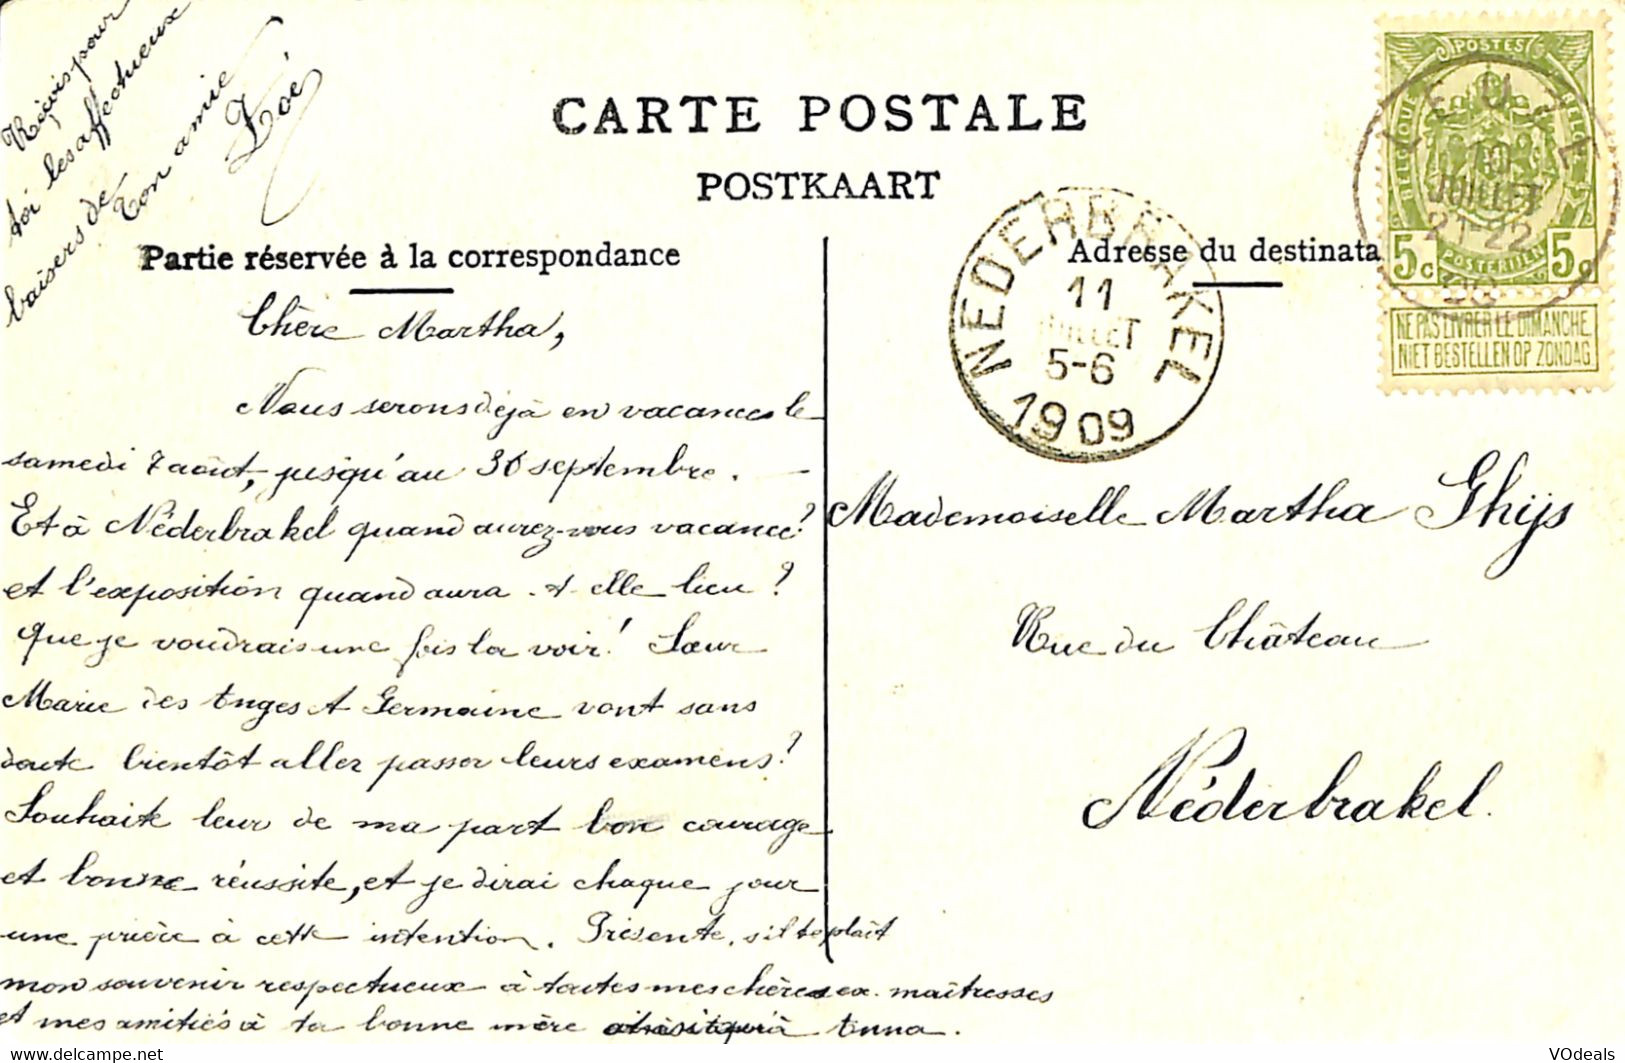 CARTE POSTALE
POSTKAART
Partie réservée à la correspondance
Adresse du destinata
POSTES
BELGIQUE
BELGIE
POSTERIJEN
5c
5c
NE PAS LIVRER LE DIMANCHE
NIET BESTELLEN OP ZONDAG
LEUZE
10
JUILLET
21-22
09
NEDERBRAKEL
11
JUILLET
5-6
1909
Chère Martha,
Nous serons déjà en vacances le
samedi 7 août, jusqu'au 30 septembre.
Et à Néderbrakel quand aurez-vous vacance?
et l'exposition quand aura-t-elle lieu?
Que je voudrais une fois la voir! Sœur
Marie des Anges et Germaine vont sans
doute bientôt aller passer leurs examens?
Souhaite leur de ma part bon courage
et bonne réussite, et je dirai chaque jour
une prière à cette intention. Présente, s'il te plaît
mon souvenir respectueux à toutes mes chères ex. maîtresses
et mes amitiés à ta bonne mère ainsi qu'à Anna.
Reçois pour
toi les affectueux
baisers de
Ton amie
Zoé
Mademoiselle Martha Ghijs
Rue du Château
Néderbrakel.
VOdeals
www.delcampe.net